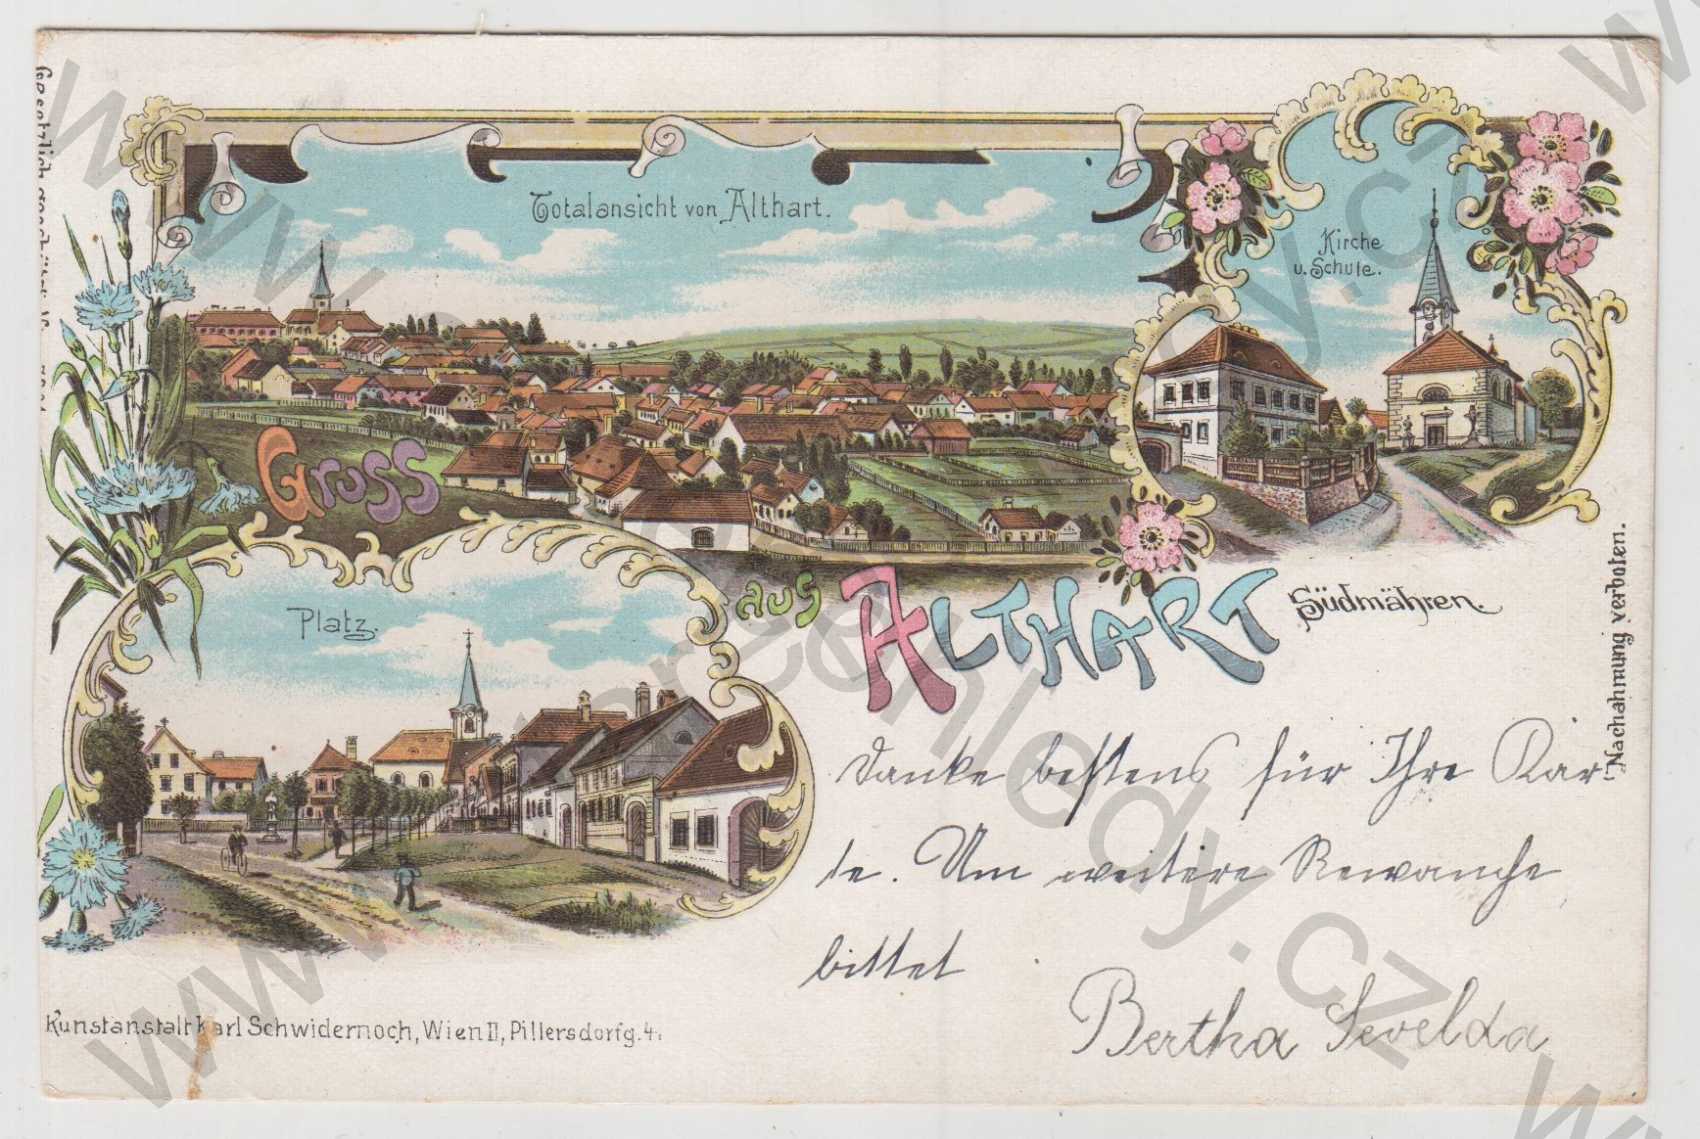 Totalansicht von Althart.
Kirche
u. Schule.
Gruss
aus ALTHART Südmähren.
Platz.
Danke bestens für Ihre Kar
te. Um weitere Rewanche
bittet
Bertha Sevelda
Kunstanstalt Karl Schwidernoch, Wien II, Pillersdorfg. 4.
Nachahmung verboten.
Gesetzlich geschützt